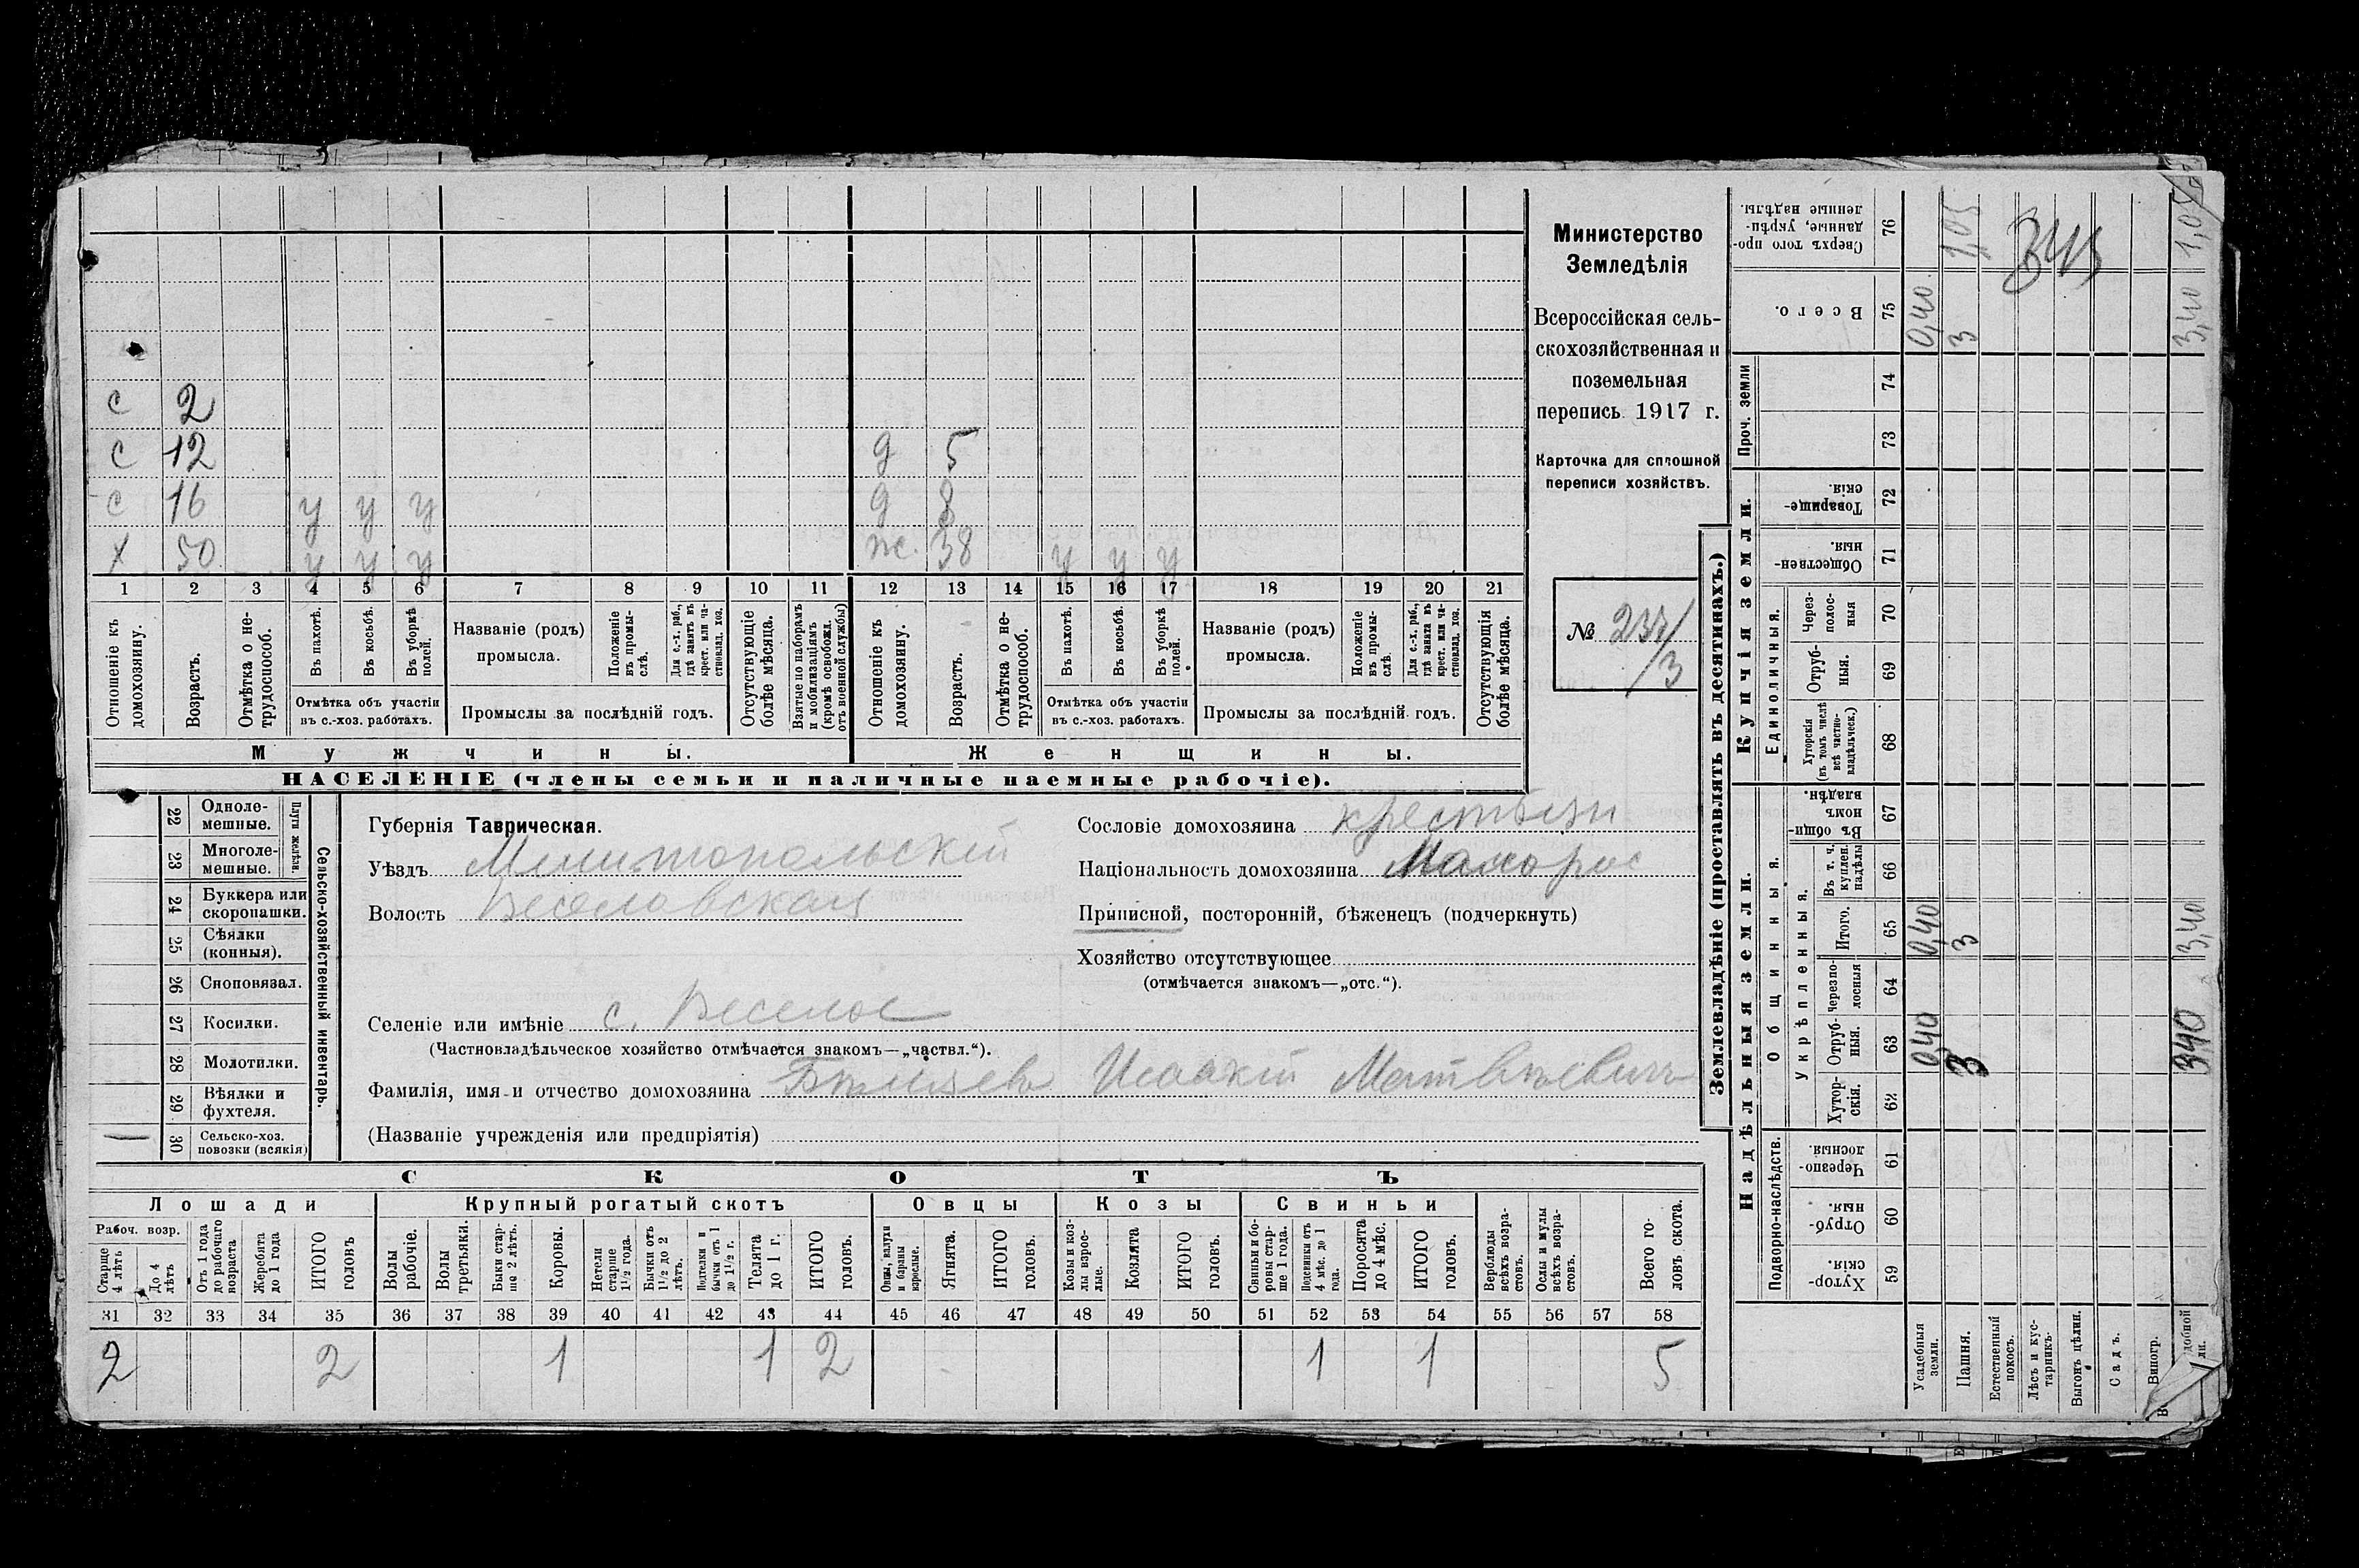 с 2
с 12 д 5
с 16 у у у д 8
х 50 у у у ж. 38 у у у
1 2 3 4 5 6 7 8 9 10 11 12 13 14 15 16 17 18 19 20 21
Отношеніе къ домохозяину.
Возрастъ.
Отмѣтка о нетрудоспособ.
Въ пахотѣ.
Въ косьбѣ.
Въ уборкѣ полей.
Отмѣтка объ участіи
въ с.-хоз. работахъ.
Названіе (родъ)
промысла.
Положеніе въ промыслѣ.
Для с.-х. раб., гдѣ занятъ въ крест. или частновлад. хоз.
Промыслы за послѣдній годъ.
Отсутствующіе болѣе мѣсяца.
Взятые по наборамъ и мобилизаціямъ (кромѣ освобожд. отъ военной службы)
Отношеніе къ домохозяину.
Возрастъ.
Отмѣтка о нетрудоспособ.
Въ пахотѣ.
Въ косьбѣ.
Въ уборкѣ полей.
Отмѣтка объ участіи
въ с.-хоз. работахъ.
Названіе (родъ)
промысла.
Положеніе въ промыслѣ.
Для с.-х. раб., гдѣ занята въ крест. или частновлад. хоз.
Промыслы за послѣдній годъ.
Отсутствующія болѣе мѣсяца.
Мужчины. Женщины.
НАСЕЛЕНІЕ (члены семьи и наличные наемные рабочіе).
Министерство
Земледѣлія
Всероссійская сель-
скохозяйственная и
поземельная
перепись 1917 г.
Карточка для сплошной
переписи хозяйствъ.
№ 237/3
Сельско-хозяйственный инвентарь.
Плуги желѣзн.
22 Одноле-
мешные.
23 Многоле-
мешные.
24 Буккера или
скоропашки.
25 Сѣялки
(конныя).
26 Сноповязал.
27 Косилки.
28 Молотилки.
29 Вѣялки и
фухтеля.
30 Сельско-хоз.
повозки (всякія)
Губернія Таврическая.
Уѣздъ Мелитопольскій
Волость Веселовская
Селеніе или имѣніе с. Веселое
(Частновладѣльческое хозяйство отмѣчается знакомъ—„частвл.“).
Фамилія, имя и отчество домохозяина Исаакій Матвѣевичъ
(Названіе учрежденія или предпріятія)
Сословіе домохозяина крестьян
Національность домохозяина Малорос
Приписной, посторонній, бѣженецъ (подчеркнуть)
Хозяйство отсутствующее
(отмѣчается знакомъ—„отс.“).
СКОТЪ
Лошади Крупный рогатый скотъ Овцы Козы Свиньи
Рабоч. возр.
Старше 4 лѣтъ
До 4 лѣтъ
Отъ 1 года до рабочаго возраста
Жеребята до 1 года
ИТОГО головъ
Волы рабочіе.
Волы третьяки.
Быки старше 2 лѣтъ.
Коровы.
Нетели старше 1½ года.
Бычки отъ 1½ до 2 лѣтъ.
Подтелки и бычки отъ 1 до 1½ г.
Телята до 1 г.
ИТОГО головъ.
Овцы, валухи и бараны взрослые.
Ягнята.
ИТОГО головъ.
Козы и козлы взрослые.
Козлята
ИТОГО головъ.
Свиньи и боровы старше 1 года.
Подсвинки отъ 4 мѣс. до 1 года.
Поросята до 4 мѣс.
ИТОГО головъ.
Верблюды всѣхъ возрастовъ.
Ослы и мулы всѣхъ возрастовъ.
Всего головъ скота.
31 32 33 34 35 36 37 38 39 40 41 42 43 44 45 46 47 48 49 50 51 52 53 54 55 56 57 58
2 2 1 1 2 1 1 5
Землевладѣніе (проставлять въ десятинахъ.)
Надѣльныя земли. Купчія земли. Проч. земли
Подворно-наслѣдств.
Общинныя.
Укрѣпленныя.
Единоличныя.
59 Хуторскія.
60 Отрубныя.
61 Черезполосныя.
62 Хуторскія.
63 Отрубныя. 0,40 3 3,40
64 Черезполосныя
65 Итого. 0,40 3 3,40
66 Въ т. ч. куплен. надѣлы
67 Въ общиномъ владѣн.
68 Хуторскія (въ томъ числѣ всѣ частновладѣльческ.)
69 Отрубныя.
70 Черезполосныя
71 Общественныя.
72 Товарищескія.
73
74
75 Всего. 0,40 3 3,40
76 Сверхъ того проданные, укрѣпленные надѣлы. 1,05 1,05
Усадебныя земли.
Пашня.
Естественный покосъ.
Лѣсъ и кустарникъ.
Выгонъ цѣлин.
Садъ.
Виногр.